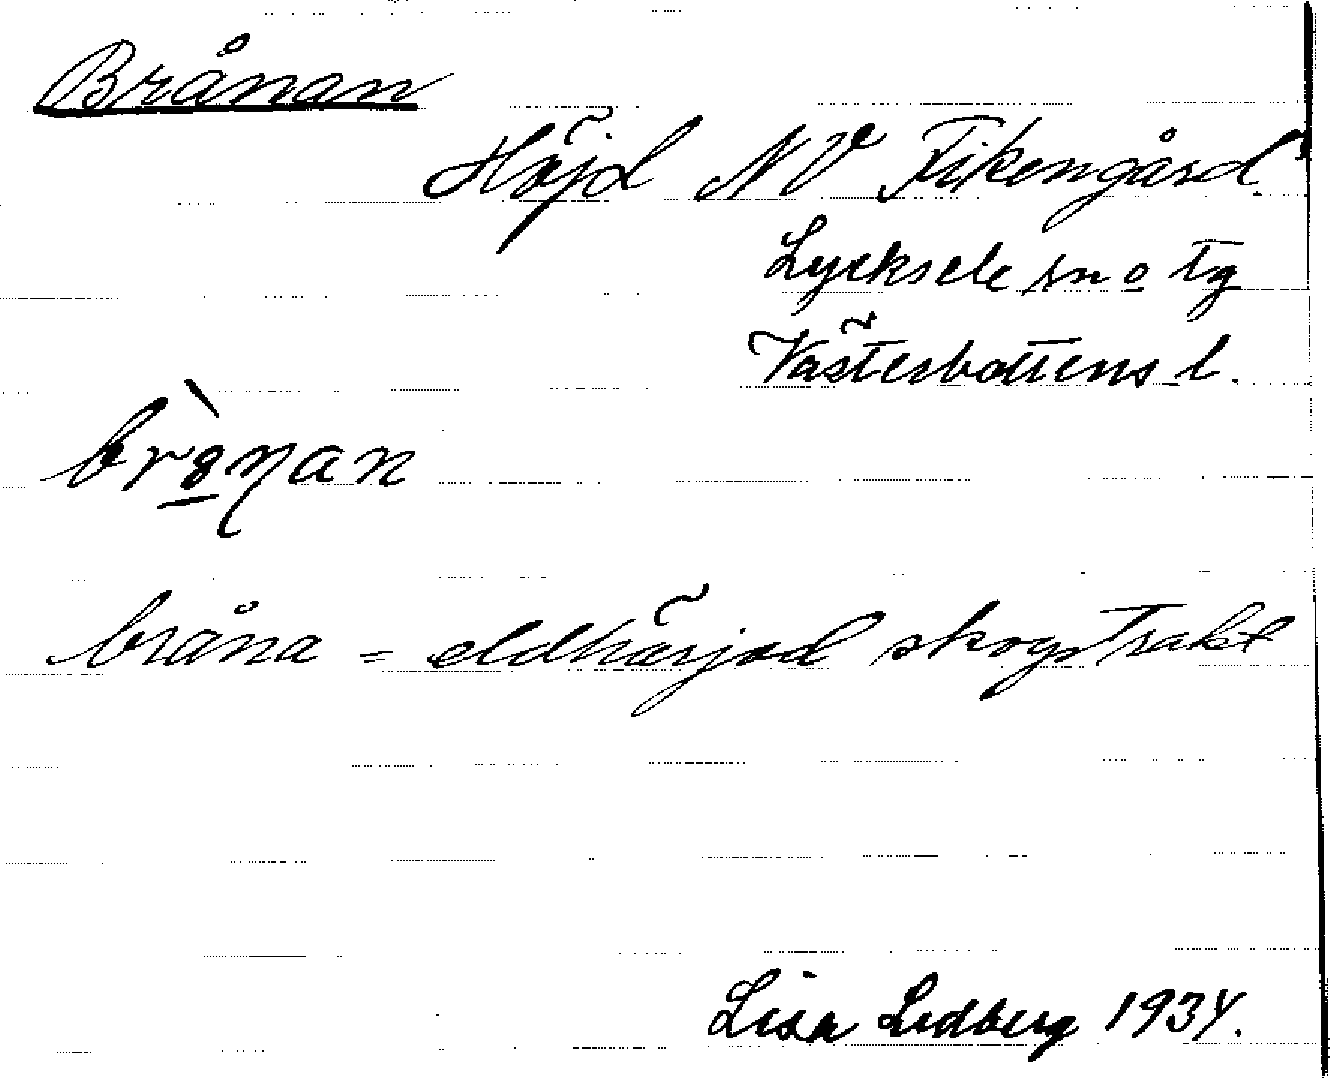 Brånan
Höjd NV Fikengård.
Lycksele sn o tg
Västerbottens l.
brånan
bråna = eldhärjad skogstrakt
Lisa Lidberg 1934.